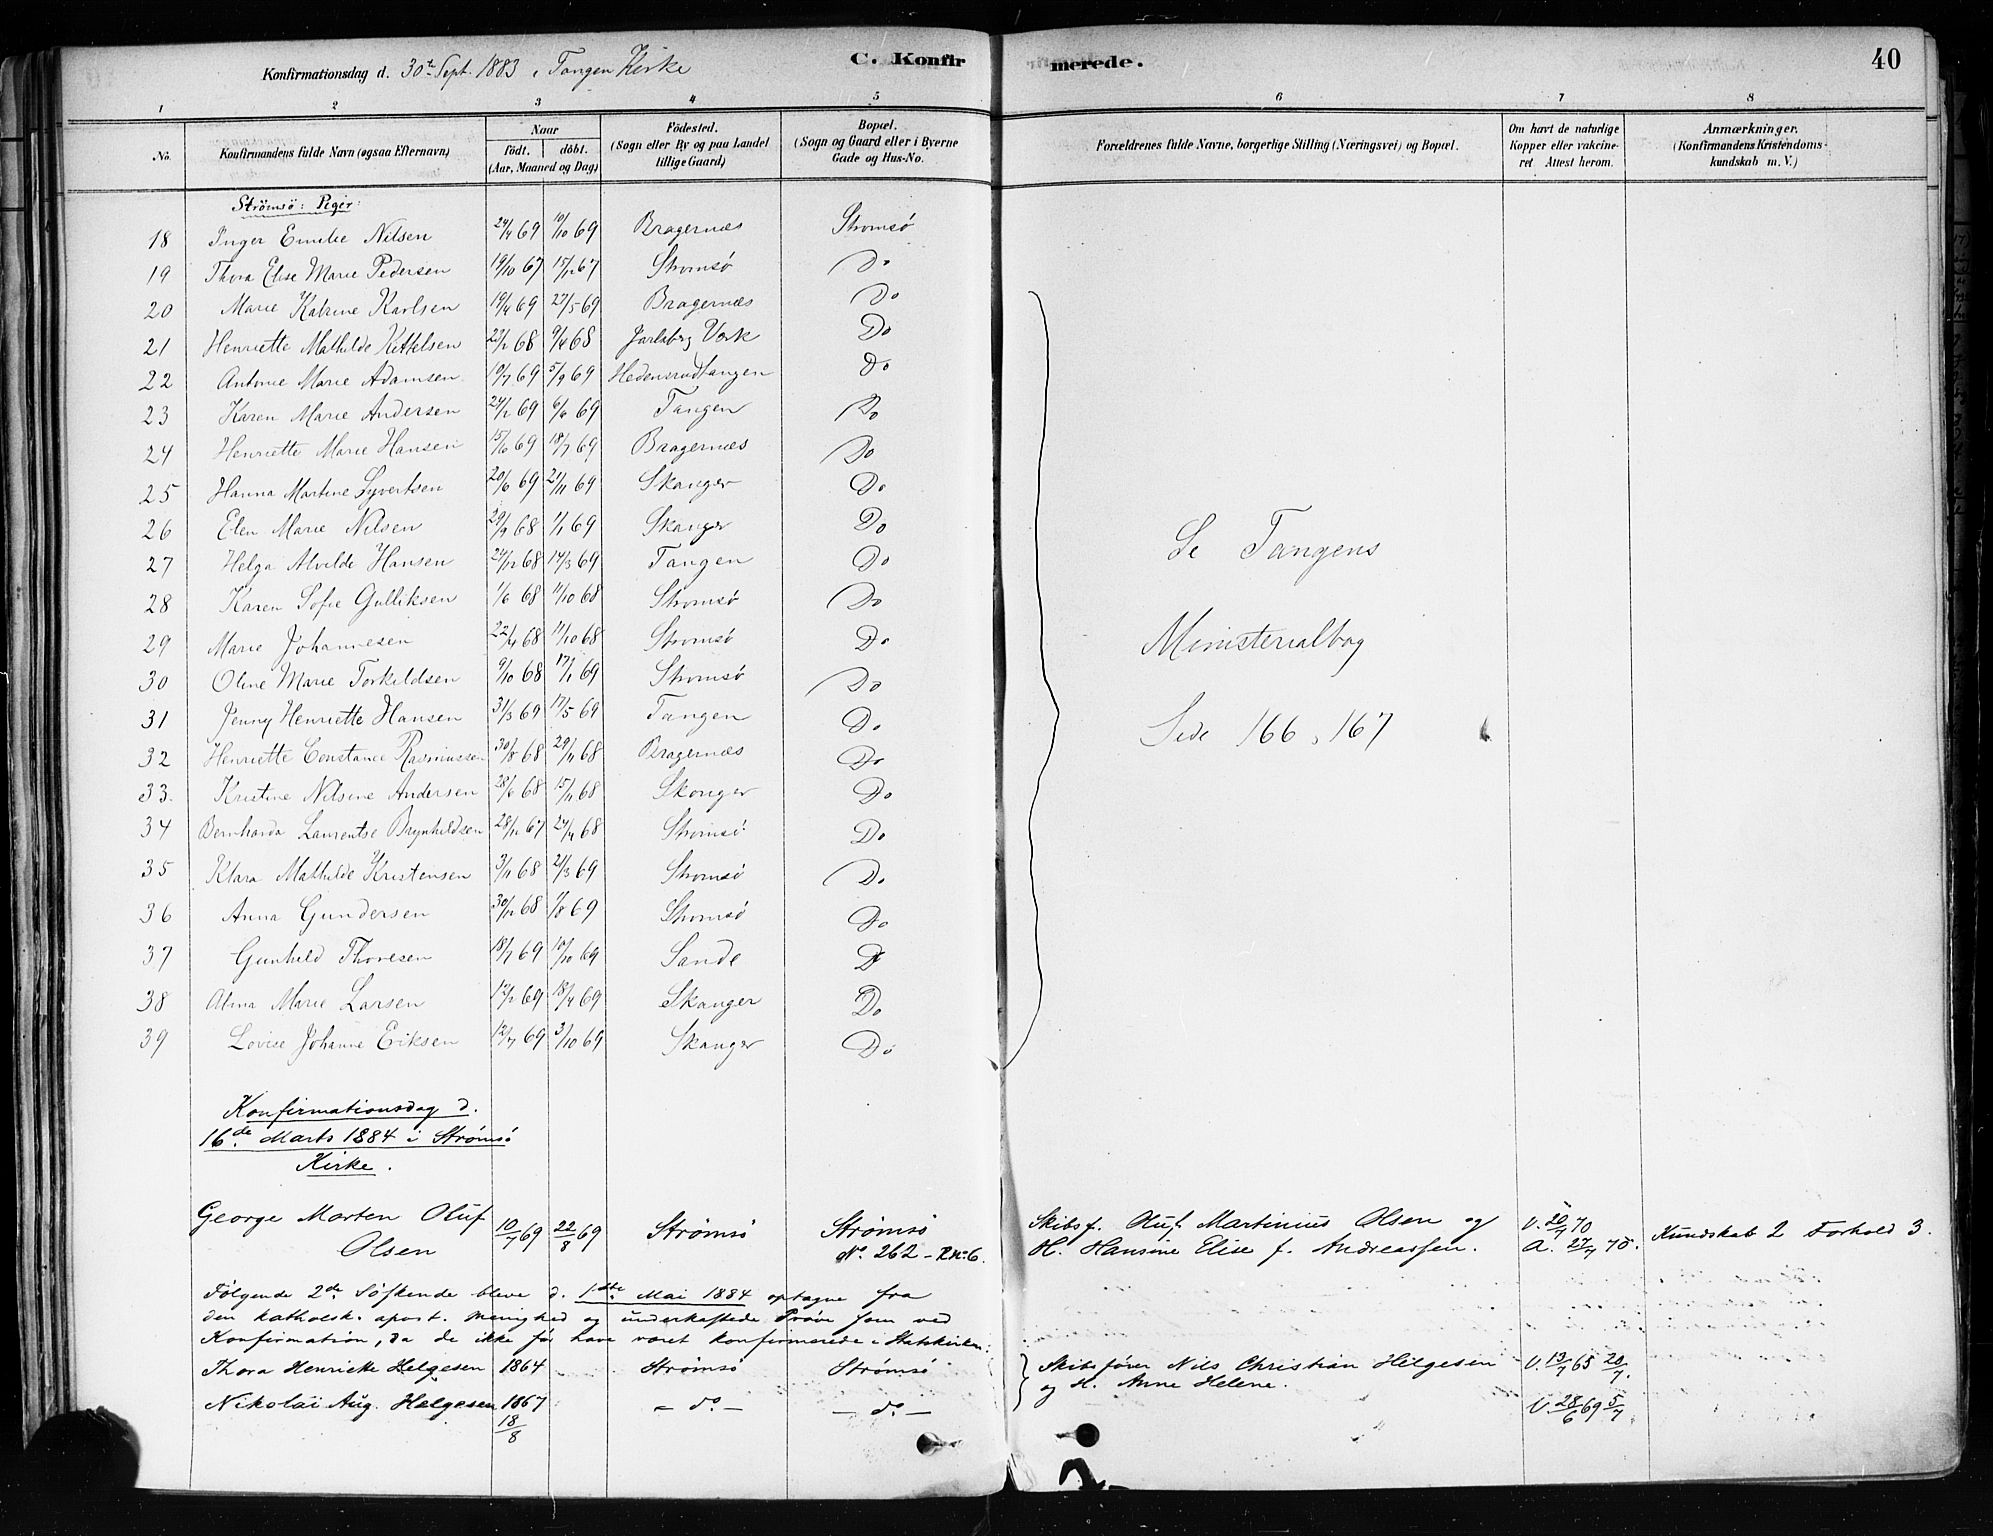 Konfirmationsdag d. 30te Sept. 1883 i Tangen Kirke
C. Konfirmerede.
40
1 2 3 4 5 6 7 8
No.
Konfirmandens fulde Navn (ogsaa Efternavn)
Naar
födt. döbt.
(Aar, Maaned og Dag)
Födested.
(Sogn eller By og paa Landet
tillige Gaard)
Bopæl.
(Sogn og Gaard eller i Byerne
Gade og Hus-No.
Forældrenes fulde Navne, borgerlige Stilling (Næringsvei) og Bopæl.
Om havt de naturlige
Kopper eller vakcine-
ret. Attest herom.
Anmærkninger.
(Konfirmandens Kristendoms-
kundskab m. V.)
Strömsö: Piger:
18 Inger Emilie Nilsen 24/4 69 10/10 69 Bragernæs Strömsö
19 Thora Elise Marie Pedersen 19/10 67 15/12 67 Strömsö Do
20 Marie Katrine Karlsen 19/4 69 27/5 69 Bragernæs Do
21 Henriette Mathilde Kittelsen 23/2 68 9/4 68 Jarlsberg Værk Do
22 Antonie Marie Adamsen 19/7 69 5/9 69 Hedensrudtangen Do
23 Karen Marie Andersen 24/2 69 6/6 69 Tangen Do
24 Henriette Marie Hansen 15/6 69 18/7 69 Bragernæs Do
25 Hanna Martine Syvertsen 20/6 69 21/11 69 Skanger Do
26 Elen Marie Nilsen 29/9 68 1/1 69 Skanger Do
27 Helga Alvilde Hansen 24/12 68 14/3 69 Tangen Do
28 Karen Sofie Gulliksen 1/6 68 11/10 68 Strömsö Do
29 Marie Johannesen 22/4 68 11/10 68 Strömsö Do
30 Oline Marie Torkildsen 9/10 68 17/1 69 Strömsö Do
31 Jenny Henriette Hansen 31/3 69 17/5 69 Tangen Do
32 Henriette Constance Rasmussen 30/8 68 29/11 68 Bragernæs Do
33. Kristine Nilsine Andersen 28/6 68 15/11 68 Skonger Do
34 Bernharda Laurentse Brynhildsen 28/12 67 24/4 68 Strömsö Do
35 Klara Mathilde Kristensen 3/11 68 21/3 69 Strömsö Do
36 Anna Gundersen 30/12 68 1/8 69 Strömsö Do
37 Gunhild Thoresen 18/7 69 10/10 69 Sande D
38 Alma Marie Larsen 12/2 69 18/4 69 Skanger Do
39 Lovise Johanne Eriksen 12/7 69 3/10 69 Skanger Do
Se Tangens
Ministerialbog
Side 166, 167
Konfirmationsdag d.
16de Marts 1884 i Strömsö
Kirke.
George Morten Oluf
Olsen 10/7 69 22/8 69 Strömsö Strömsö
No. 262 - R.No 6.
Skibsf. Oluf Martinius Olsen og
H. Hansine Elise f. Andreassen.
V. 20/7 70
A. 27/7 70.
Kundskab 2 Forhold 3.
Følgende 2de Søskende bleve d. 1ste Mai 1884 optagne fra
den katholsk. apost. Menighed og underkastede Prøve som ved
Konfirmation, da de ikke før have været konfirmerede i Statskirken:
Thora Henriette Helgesen 1864 Strömsö Strömsö
Skibsfører Nils Christian Helgesen
og H. Anne Helene.
V. 13/7 65 20/7.
Nikolai Aug. Helgesen 1867
18/8
- do - - do -
V. 28/6 69 5/7